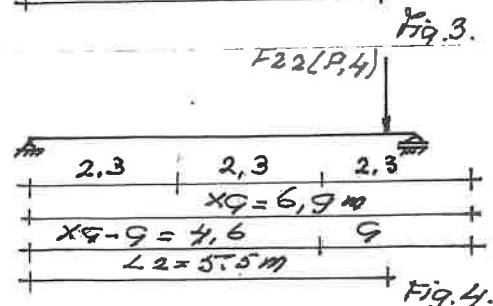 Fig.3.
F22(P,4)
2,3 2,3 2,3
x9=6,9m
x9-9=4,6 9
L2=5.5m
Fig.4.